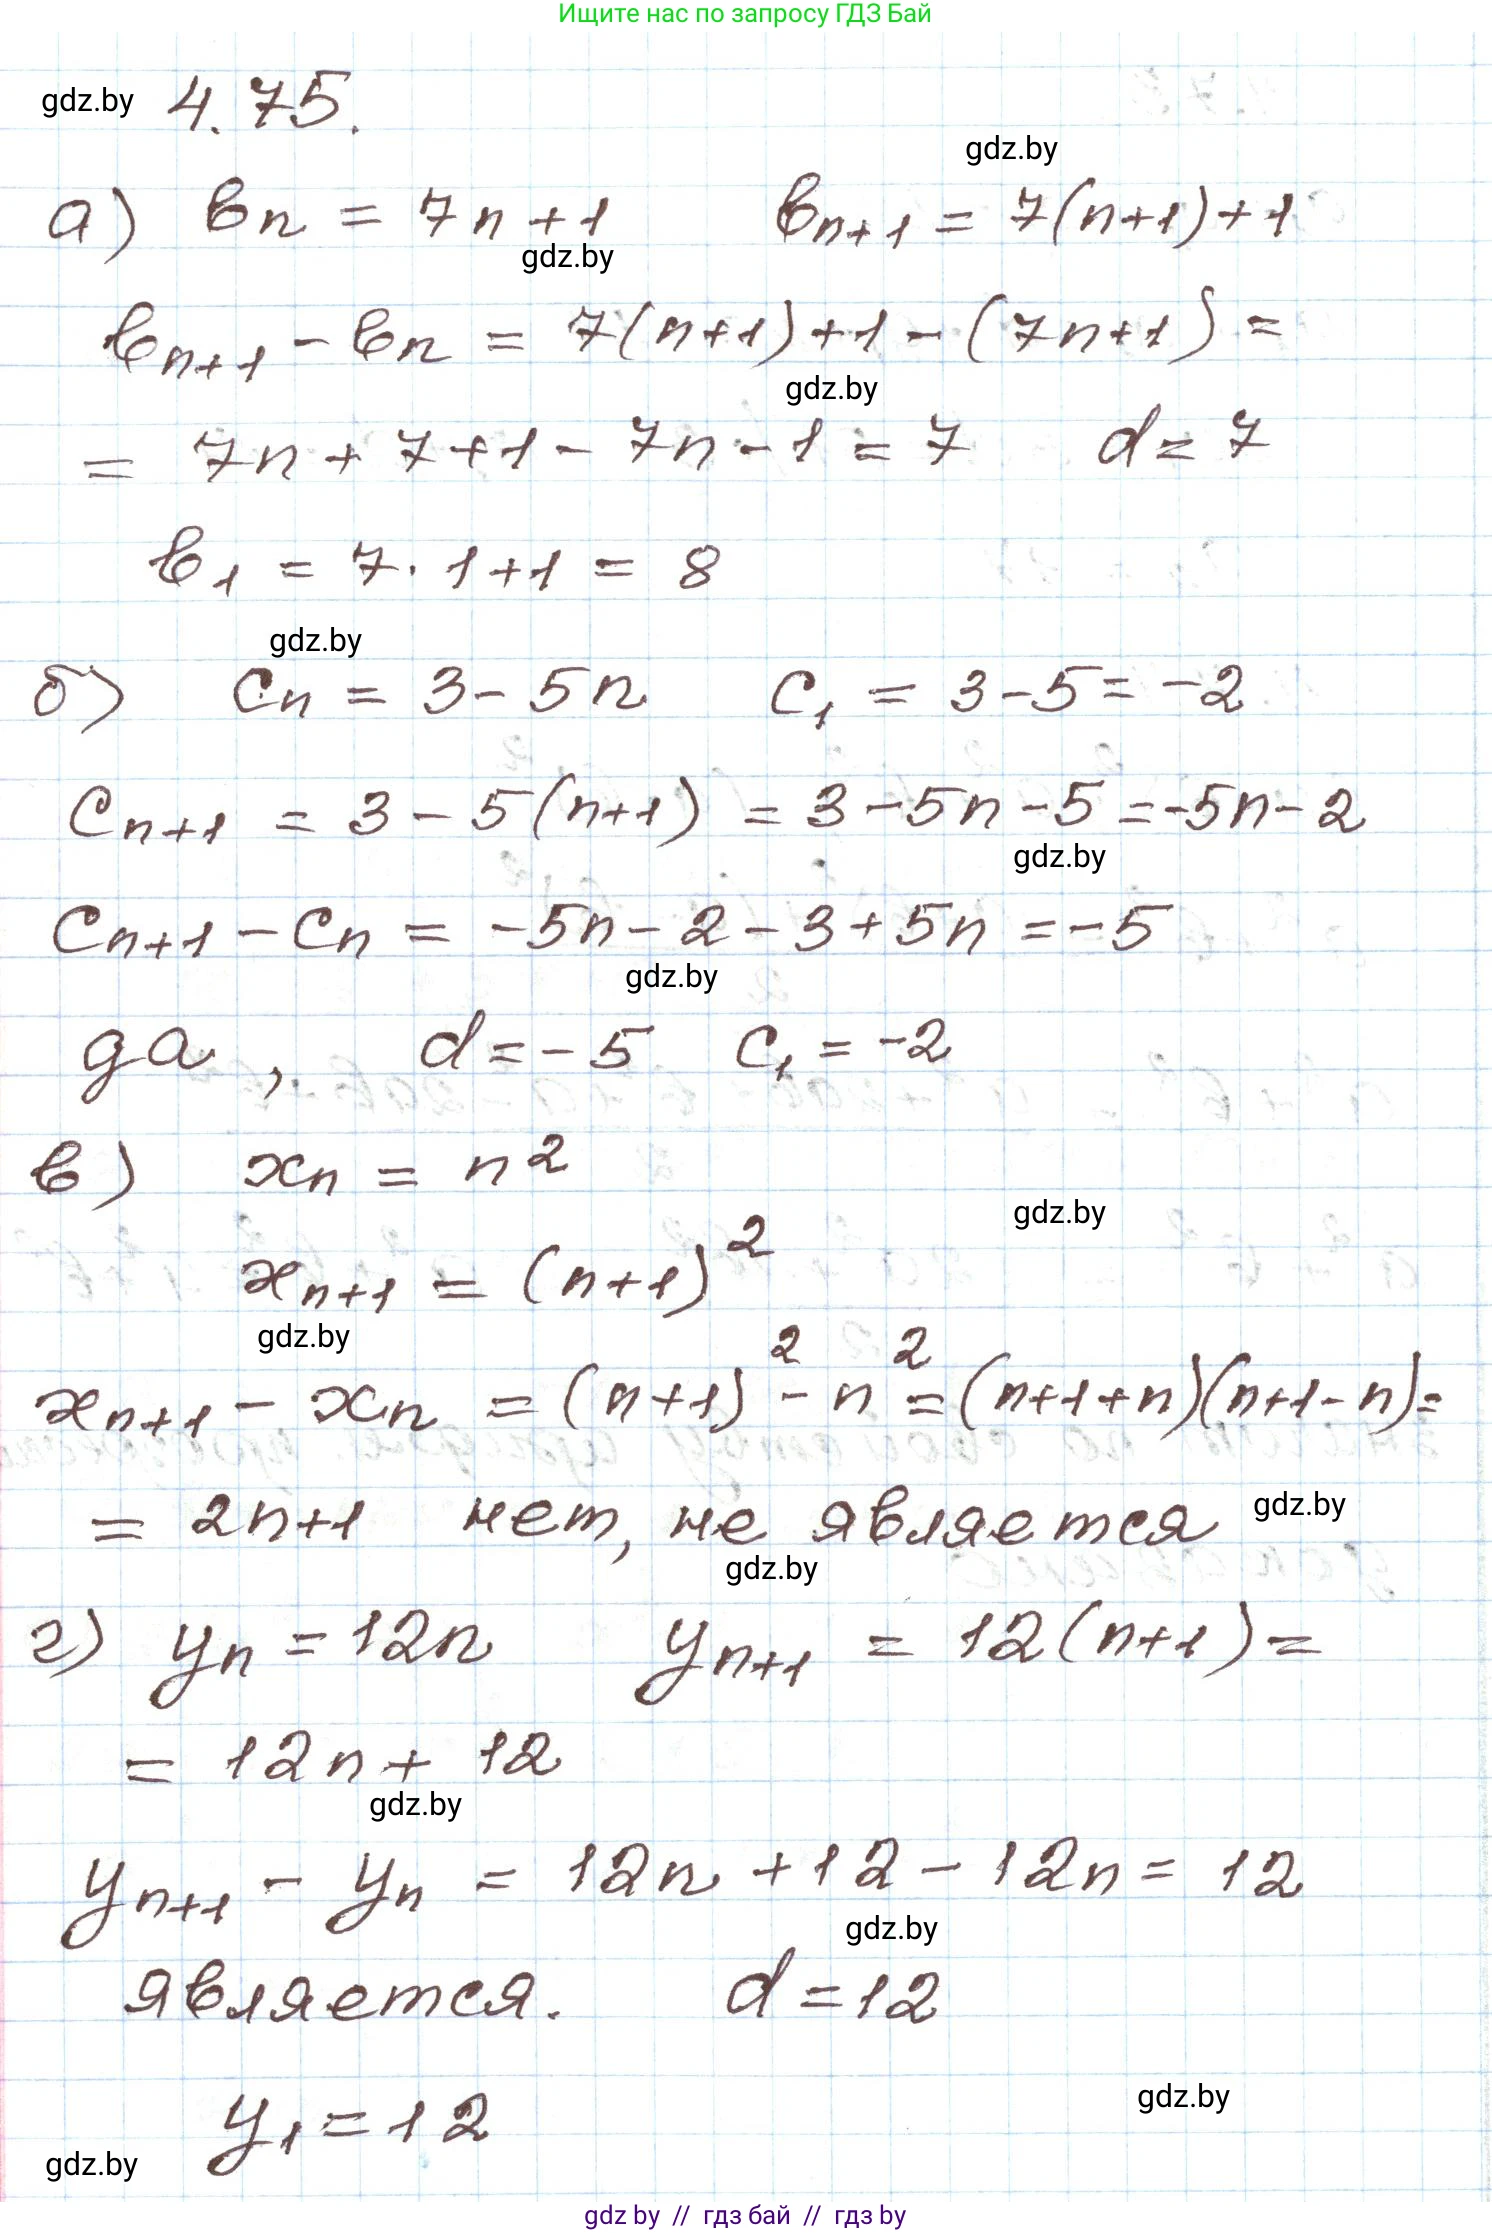 Ищите нас по запросу ГДЗ Бай
gdz.by 4.75.
gdz.by
а) bn = 7n + 1 bn+1 = 7(n+1)+1
gdz.by
bn+1 - bn = 7(n+1)+1-(7n+1) =
gdz.by
= 7n + 7 + 1 - 7n - 1 = 7 d = 7
b1 = 7 · 1 + 1 = 8
gdz.by
б) Cn = 3 - 5n C1 = 3 - 5 = -2
Cn+1 = 3 - 5(n+1) = 3 - 5n - 5 = -5n - 2
gdz.by
Cn+1 - Cn = -5n - 2 - 3 + 5n = -5
gdz.by
да, d = -5 C1 = -2
в) xn = n²
gdz.by
xn+1 = (n+1)²
gdz.by
xn+1 - xn = (n+1)² - n² = (n+1+n)(n+1-n) =
= 2n+1 нет, не является gdz.by
gdz.by
г) yn = 12n yn+1 = 12(n+1) =
= 12n + 12
gdz.by
yn+1 - yn = 12n + 12 - 12n = 12
gdz.by
является. d = 12
gdz.by
y1 = 12
gdz.by
gdz by // гдз бай // гдз by